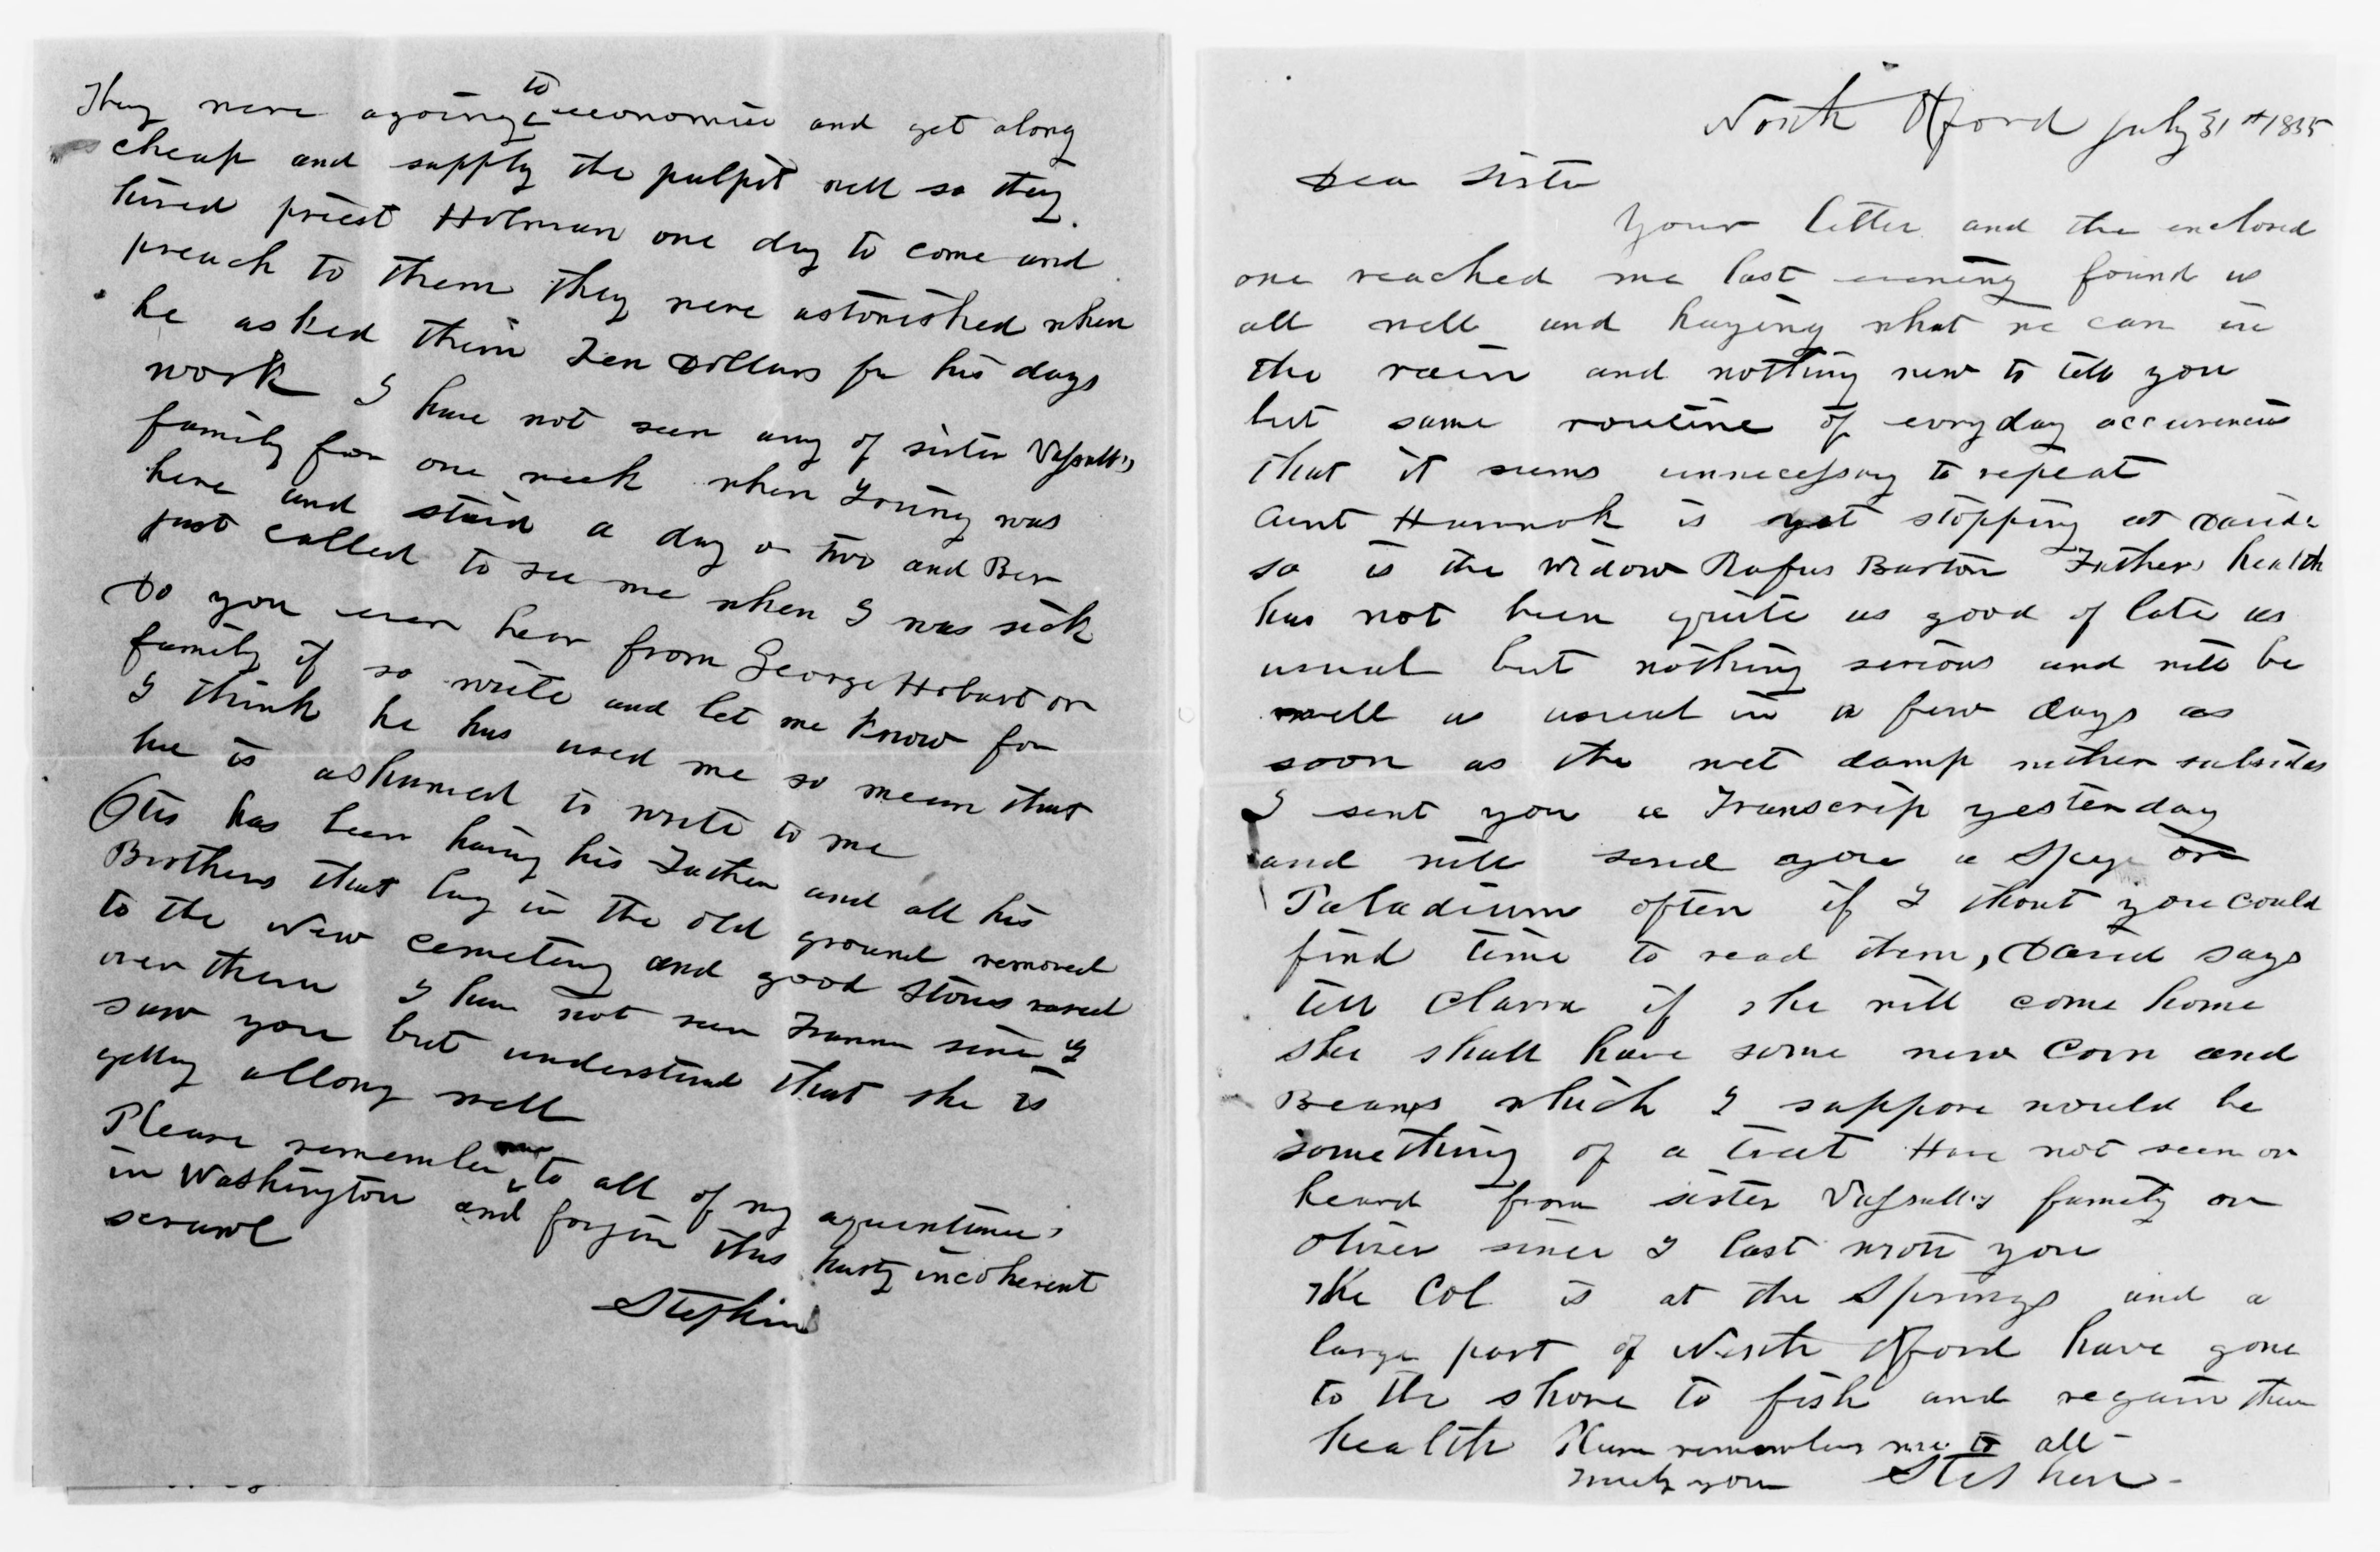 They were agoing to economise and get along
cheap and supply the pulpit well so they
hired priest Holman one day to come and
preach to them they were astonished when
he asked them Ten Dollars for his days
work I have not seen any of sister Vassall's
family for one week when Irving was
here and staid a day or two and Ber
just called to see me when I was sick
Do you ever hear from George Hobart or
family if so write and let me know for
I think he has used me so mean that
he is ashamed to write to me
Otis has been having his Father and all his
Brothers that lay in the old ground removed
to the New cemetery and good stones raised
over them I have not seen since I
saw you but understand that she is
getting allong well
Please remember me to all of my aquentance
in Washington and forgive this hasty incoherent
scrawl
Stephen
North Oxford July 31st 1855
Dear Sister
Your letter and the enclosed
one reached me last evening found us
all well and haying what we can in
the rain and nothing new to tell you
but same routine of evryday occurences
that it seems unnecessary to repeat
Aunt Hannah is yet stopping at Davids
so is the widow Rufus Barton Fathers health
has not been quite as good of late as
usual but nothing serious and will be
well as usual in a few days as
soon as the wet damp wether subsides
I sent you a Transcrip yesterday
and will send you a Spy or
Paladium often if I thout you could
find time to read them, David says
tell Clara if she will come home
she shall have some new Corn and
Beans which I suppose would be
something of a treat Have not seen or
heard from sister Vassall's family or
Oliver since I last wrote you
The Col is at the Springs and a
large part of North Oxford have gone
to the shore to fish and regain their
health Please remember me to all
Stephen